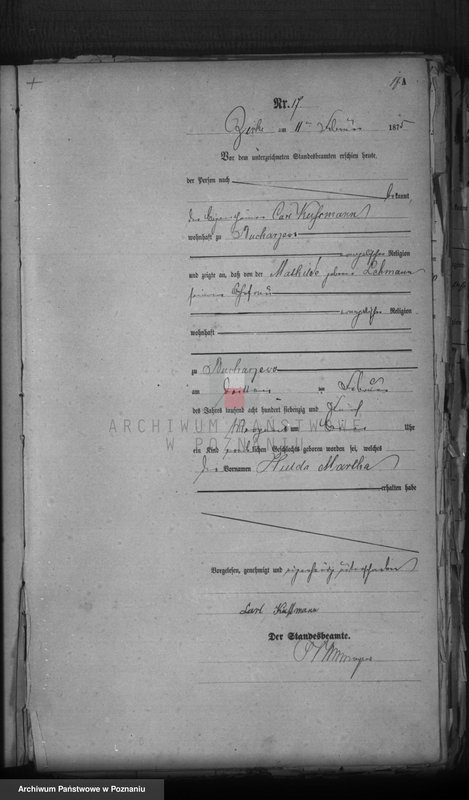 17 A
Nr. 17.
Zirke am 11ten Februar 1875
Vor dem unterzeichneten Standesbeamten erschien heute,
der Person nach
bekannt,
der Eigenthümer Carl Kußmann
wohnhaft zu Mucharzewo
evangelischer Religion
und zeigte an, daß von der Mathilde geborne Lehmann
seiner Ehefrau
evangelischer Religion
wohnhaft
zu Mucharzewo
am dritten Februar
des Jahres tausend acht hundert siebenzig und fünf
Morgens um Uhr
ein Kind weiblichen Geschlechts geboren worden sei, welches
die Vornamen Hulda Martha
erhalten habe
Vorgelesen, genehmigt und eigenhändig unterschrieben
Carl Kußmann
Der Standesbeamte.
ARCHIWUM PAŃSTWOWE
W POZNANIU
Archiwum Państwowe w Poznaniu